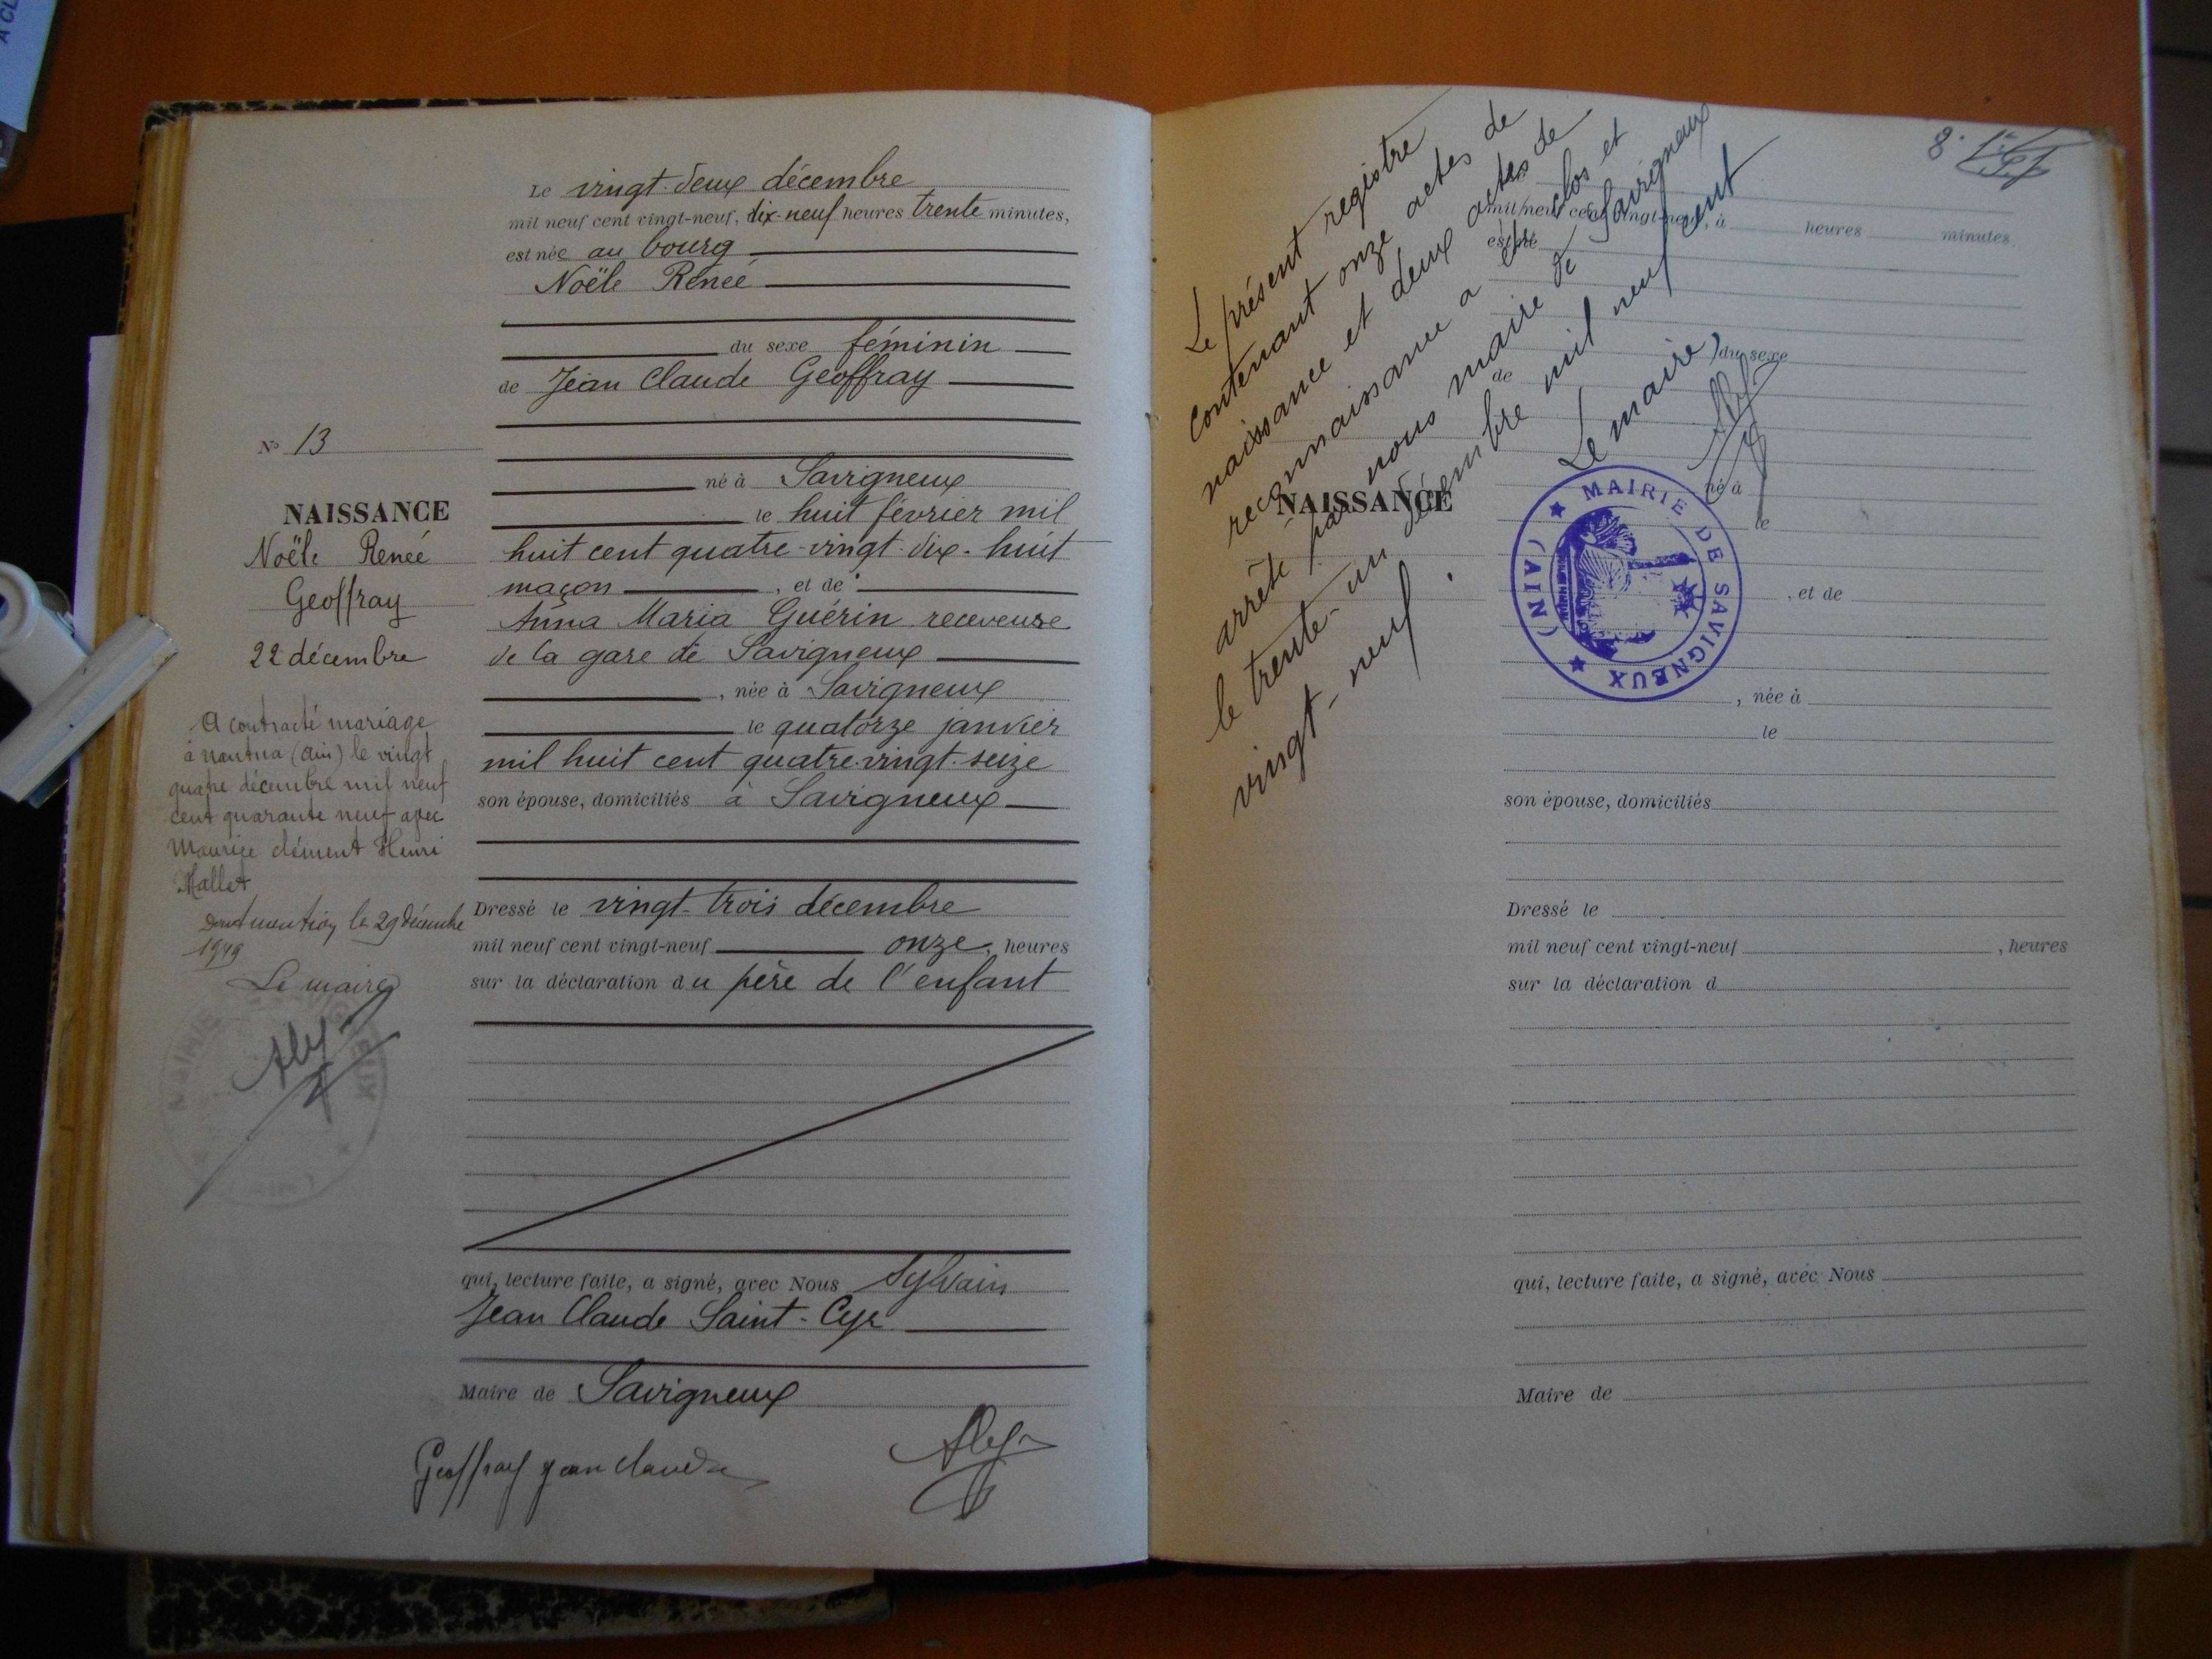 Le vingt-deux décembre
mil neuf cent vingt-neuf, dix-neuf heures trente minutes,
est née au bourg
Noële Renée
du sexe féminin
de Jean Claude Geoffray
né à Savigneux
le huit février mil
huit cent quatre-vingt-dix-huit
maçon, et de
Anna Maria Guérin receveuse
de la gare de Savigneux
, née à Savigneux
le quatorze janvier
mil huit cent quatre-vingt-seize
son épouse, domiciliés à Savigneux
Dressé le vingt-trois décembre
mil neuf cent vingt-neuf onze, heures
sur la déclaration du père de l'enfant
qui, lecture faite, a signé, avec Nous Sylvain
Jean Claude Saint-Cyr
Maire de Savigneux
Geoffray jean claude
N° 13
NAISSANCE
Noële Renée
Geoffray
22 décembre
A contracté mariage
à Nantua (Ain) le vingt
quatre décembre mil neuf
cent quarante neuf avec
Maurice Clément Henri
Mallet
Dont mention le 29 décembre
1949
Le maire
MAIRIE
8.
Le présent registre
contenant onze actes de
naissance et deux actes de
reconnaissance a été clos et
arrêté par nous maire de Savigneux
le trente-un décembre mil neuf cent
vingt-neuf.
Le maire,
MAIRIE DE SAVIGNEUX (AIN)
NAISSANCE
mil neuf cent vingt-neuf, à heures minutes,
est né
du sexe
de
né à
le
, et de
, née à
le
son épouse, domiciliés
Dressé le
mil neuf cent vingt-neuf , heures
sur la déclaration d
qui, lecture faite, a signé, avec Nous
Maire de